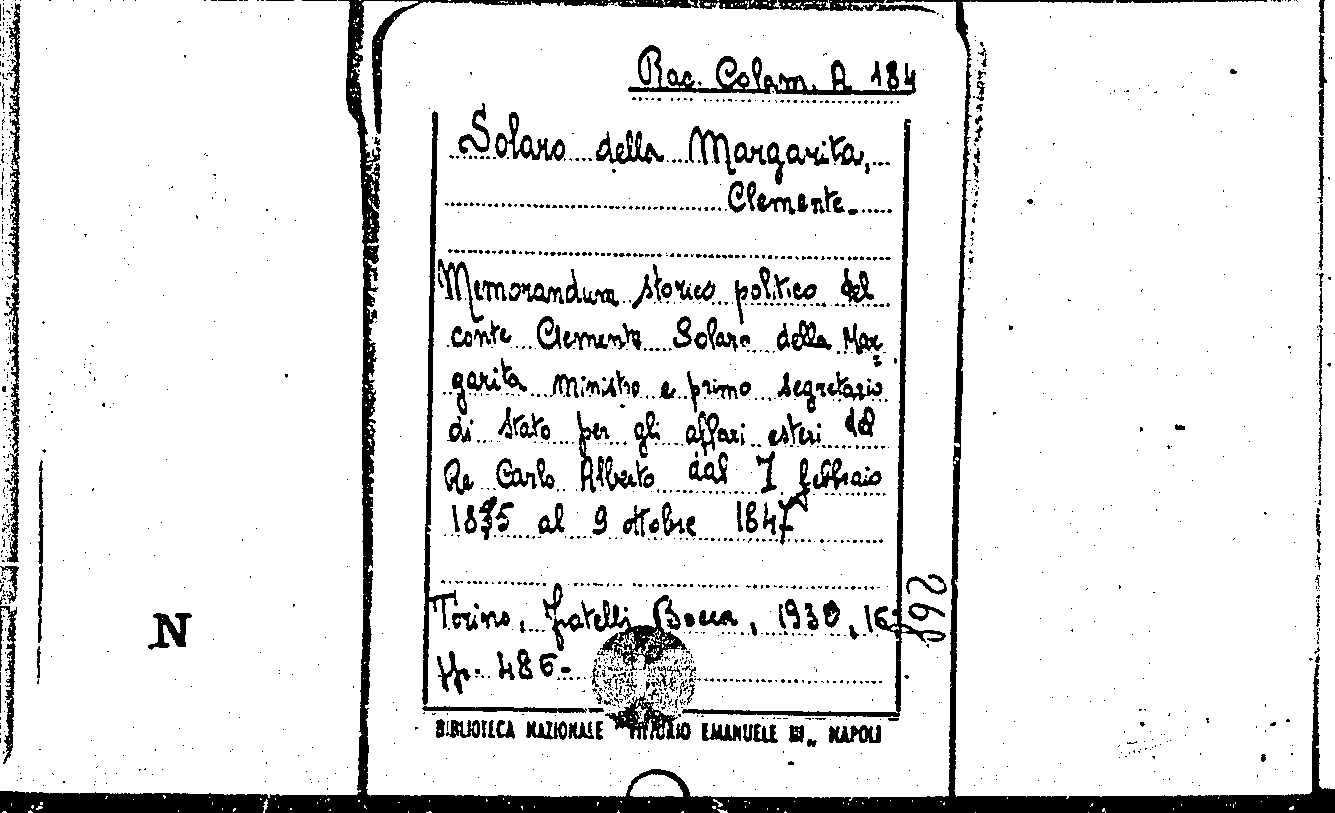 Rac. Colam. A 184
Solaro della Margarita,
Clemente.
Memorandum storico politico del
conte Clemente Solaro della Mar=
garita ministro e primo segretario
di stato per gli affari esteri del
Re Carlo Alberto dal 7 febbraio
1835 al 9 ottobre 1847
Torino, Fratelli Bocca, 1930, 16°
pp. 486.
BIBLIOTECA NAZIONALE "VITTORIO EMANUELE III„ NAPOLI
268
N